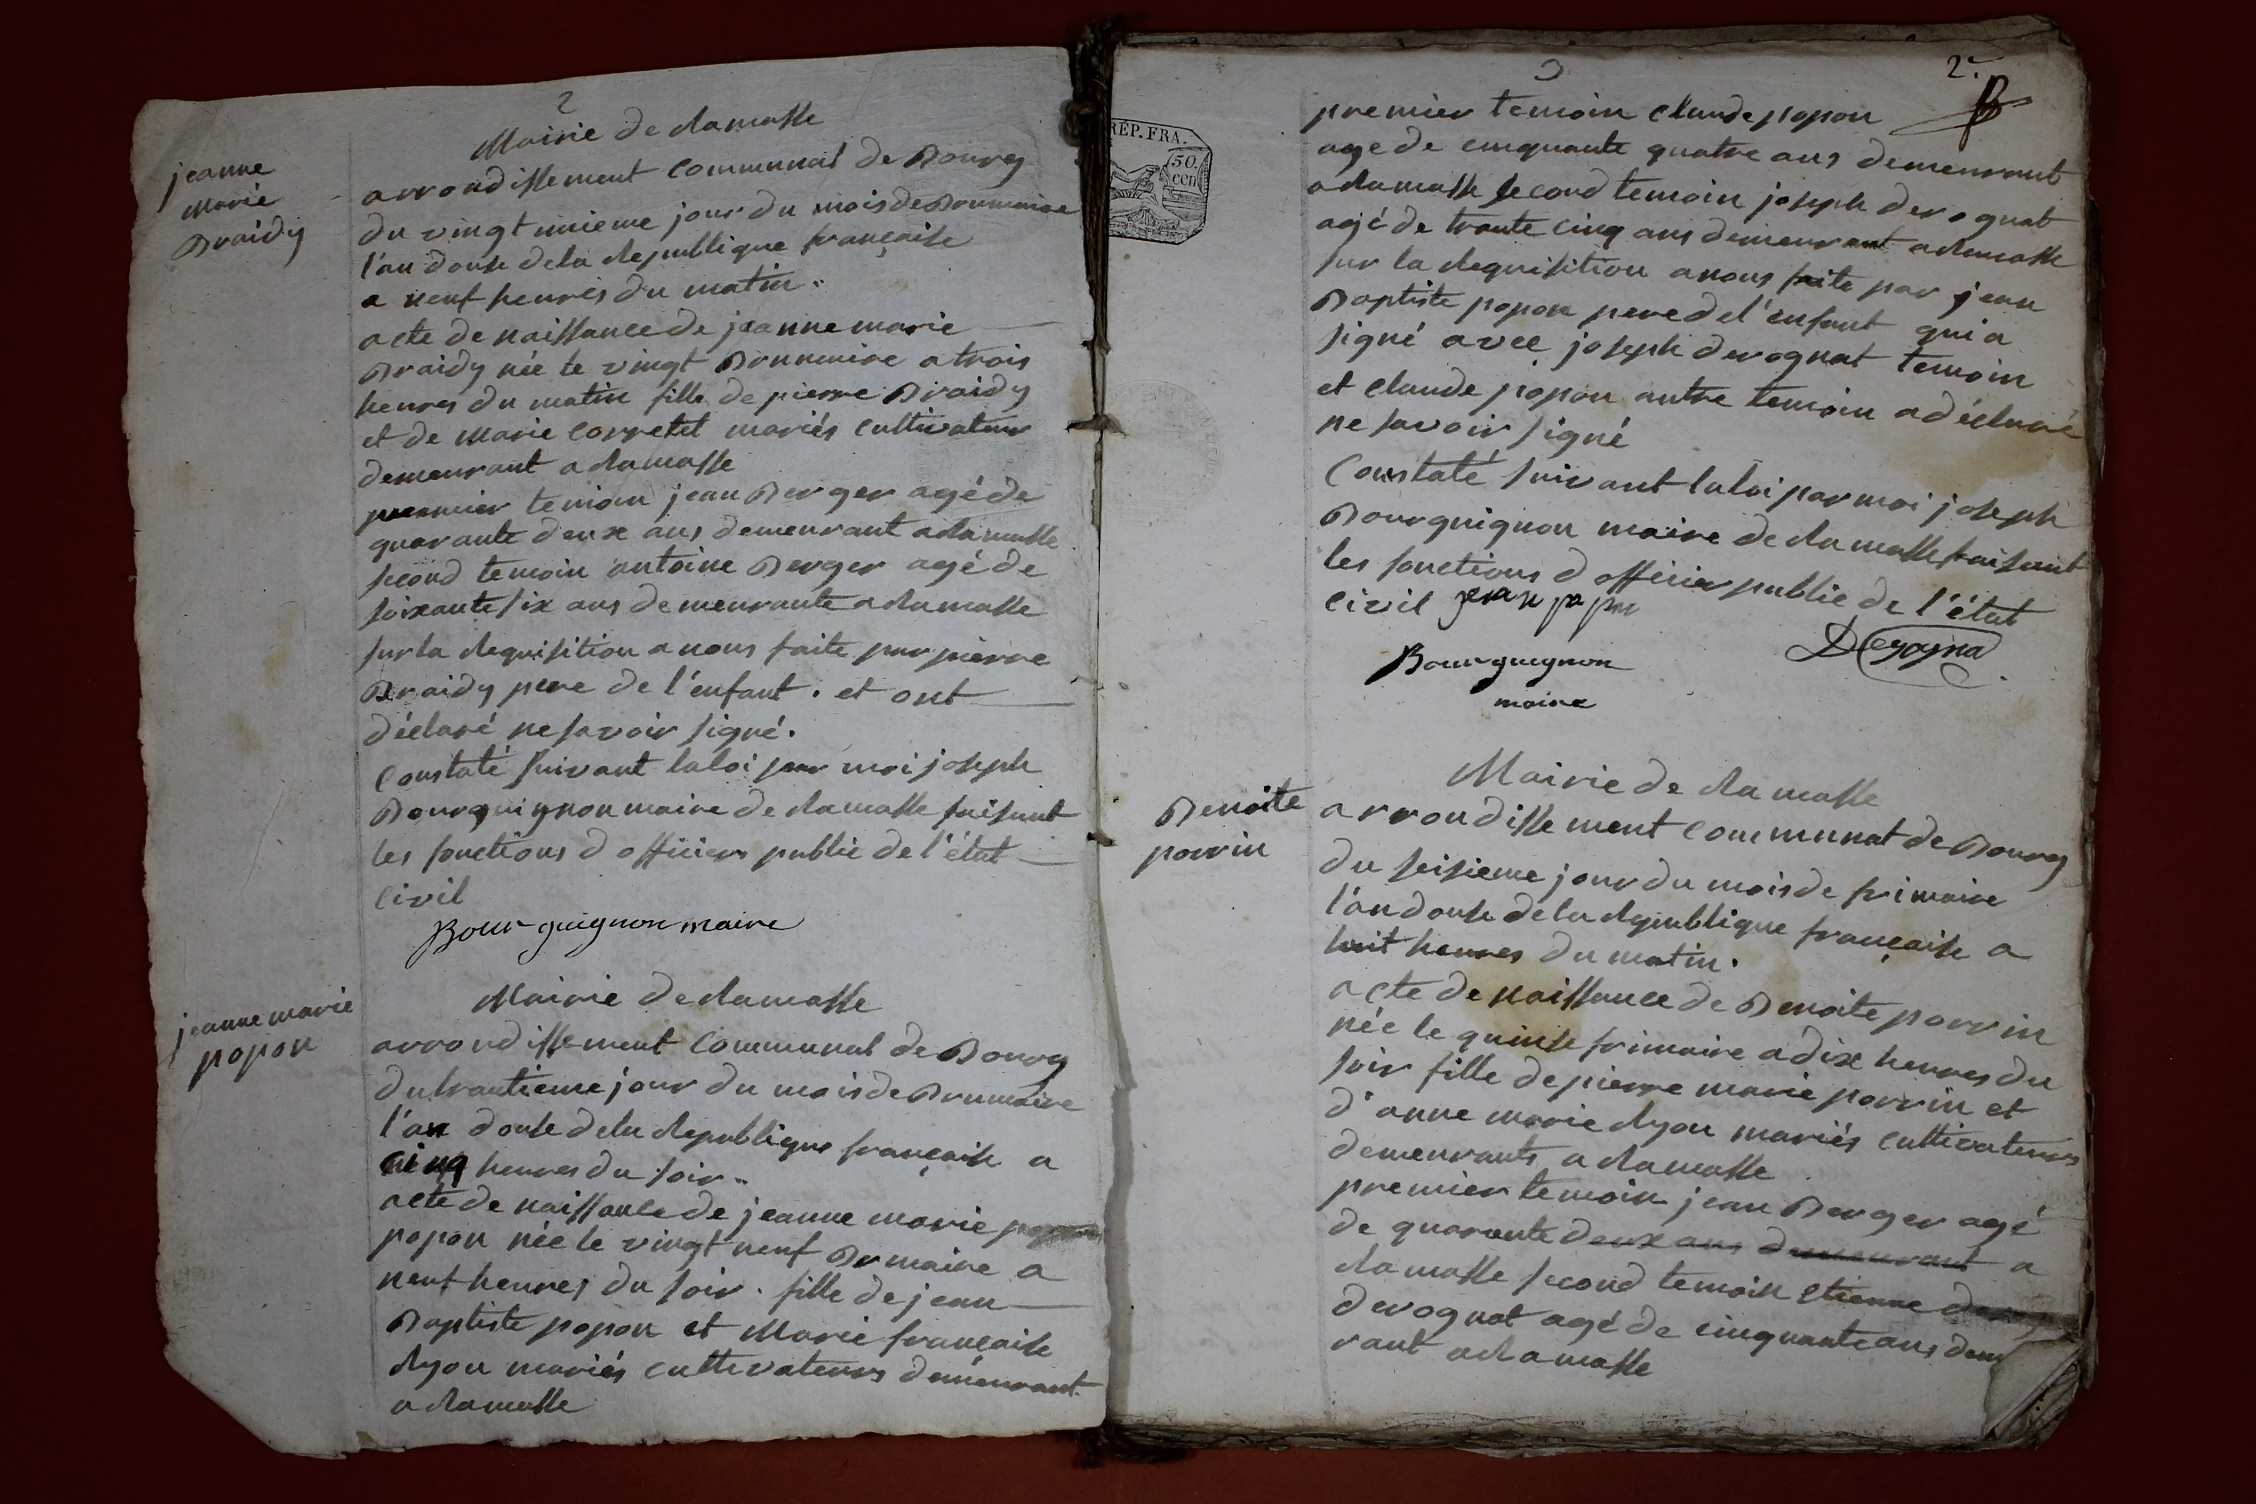 2
Mairie de ramasse
jeanne
marie
Braidy
arrondissement communal de Bourg
du vingt unieme jour du mois de Brumaire
l'an douse de la republique française
a neuf heures du matin.
acte de naissance de jeanne marie
Braidy née le vingt Brumaire a trois
heures du matin fille de pierre Braidy
et de Marie Corretel mariés cultivateur
demeurant a ramasse
premier temoin jean Berger agé de
quarante deux ans demeurant a ramasse
second temoin antoine Berger agé de
soixante six ans demeurante a ramasse
sur la requisition a nous faite par pierre
Braidy pere de l'enfant. et ont
déclaré ne savoir signé.
Constaté suivant la loi par moi joseph
Bourguignon maire de ramasse faisant
les fonctions d officier public de l'état
civil
Bourguignon maire
jeanne marie
popon
Mairie de ramasse
arrondissement communal de Bourg
du trantieme jour du mois de Brumaire
l'an douse de la republique française a
cinq heures du soir.
acte de naissance de jeanne marie
popon née le vingt neuf Brmaire a
neuf heures du soir. fille de jean
Baptiste popon et Marie française
ryon mariés cultivateurs demeurant
a ramasse
3
2e.
RÉP. FRA.
50.
cen
premier temoin claude popon
age de cinquante quatre ans demeurant
a ramasse second temoin joseph derognat
agé de trante cinq ans demeurant a ramasse
sur la requisition a nous faite par jean
Baptiste popon pere de l'enfant qui a
signé avec joseph derognat temoin
et claude popon autre temoin a déclaré
ne savoir signé
Constaté suivant la loi par moi joseph
Bourguignon maire de ramasse faisant
les fonctions d officier public de l'état
civil jean popon
Derogna
Bourguignon
maire
Mairie de ramasse
Benoite
porrin
arrondissement communat de Bourg
du seisieme jour du mois de frimaire
l'an douse de la republique française a
huit heures du matin.
acte de naissance de Benoite porrin
née le quinse frimaire a dix heures du
soir fille de pierre marie porrin et
d'anne marie ryon mariés cultivateurs
demeurants a ramasse
premier temoin jean Berger agé
de quarante deux ans demeurant a
ramasse second temoin Etienne
derognat agé de cinquante ans demeu
rant a ramasse